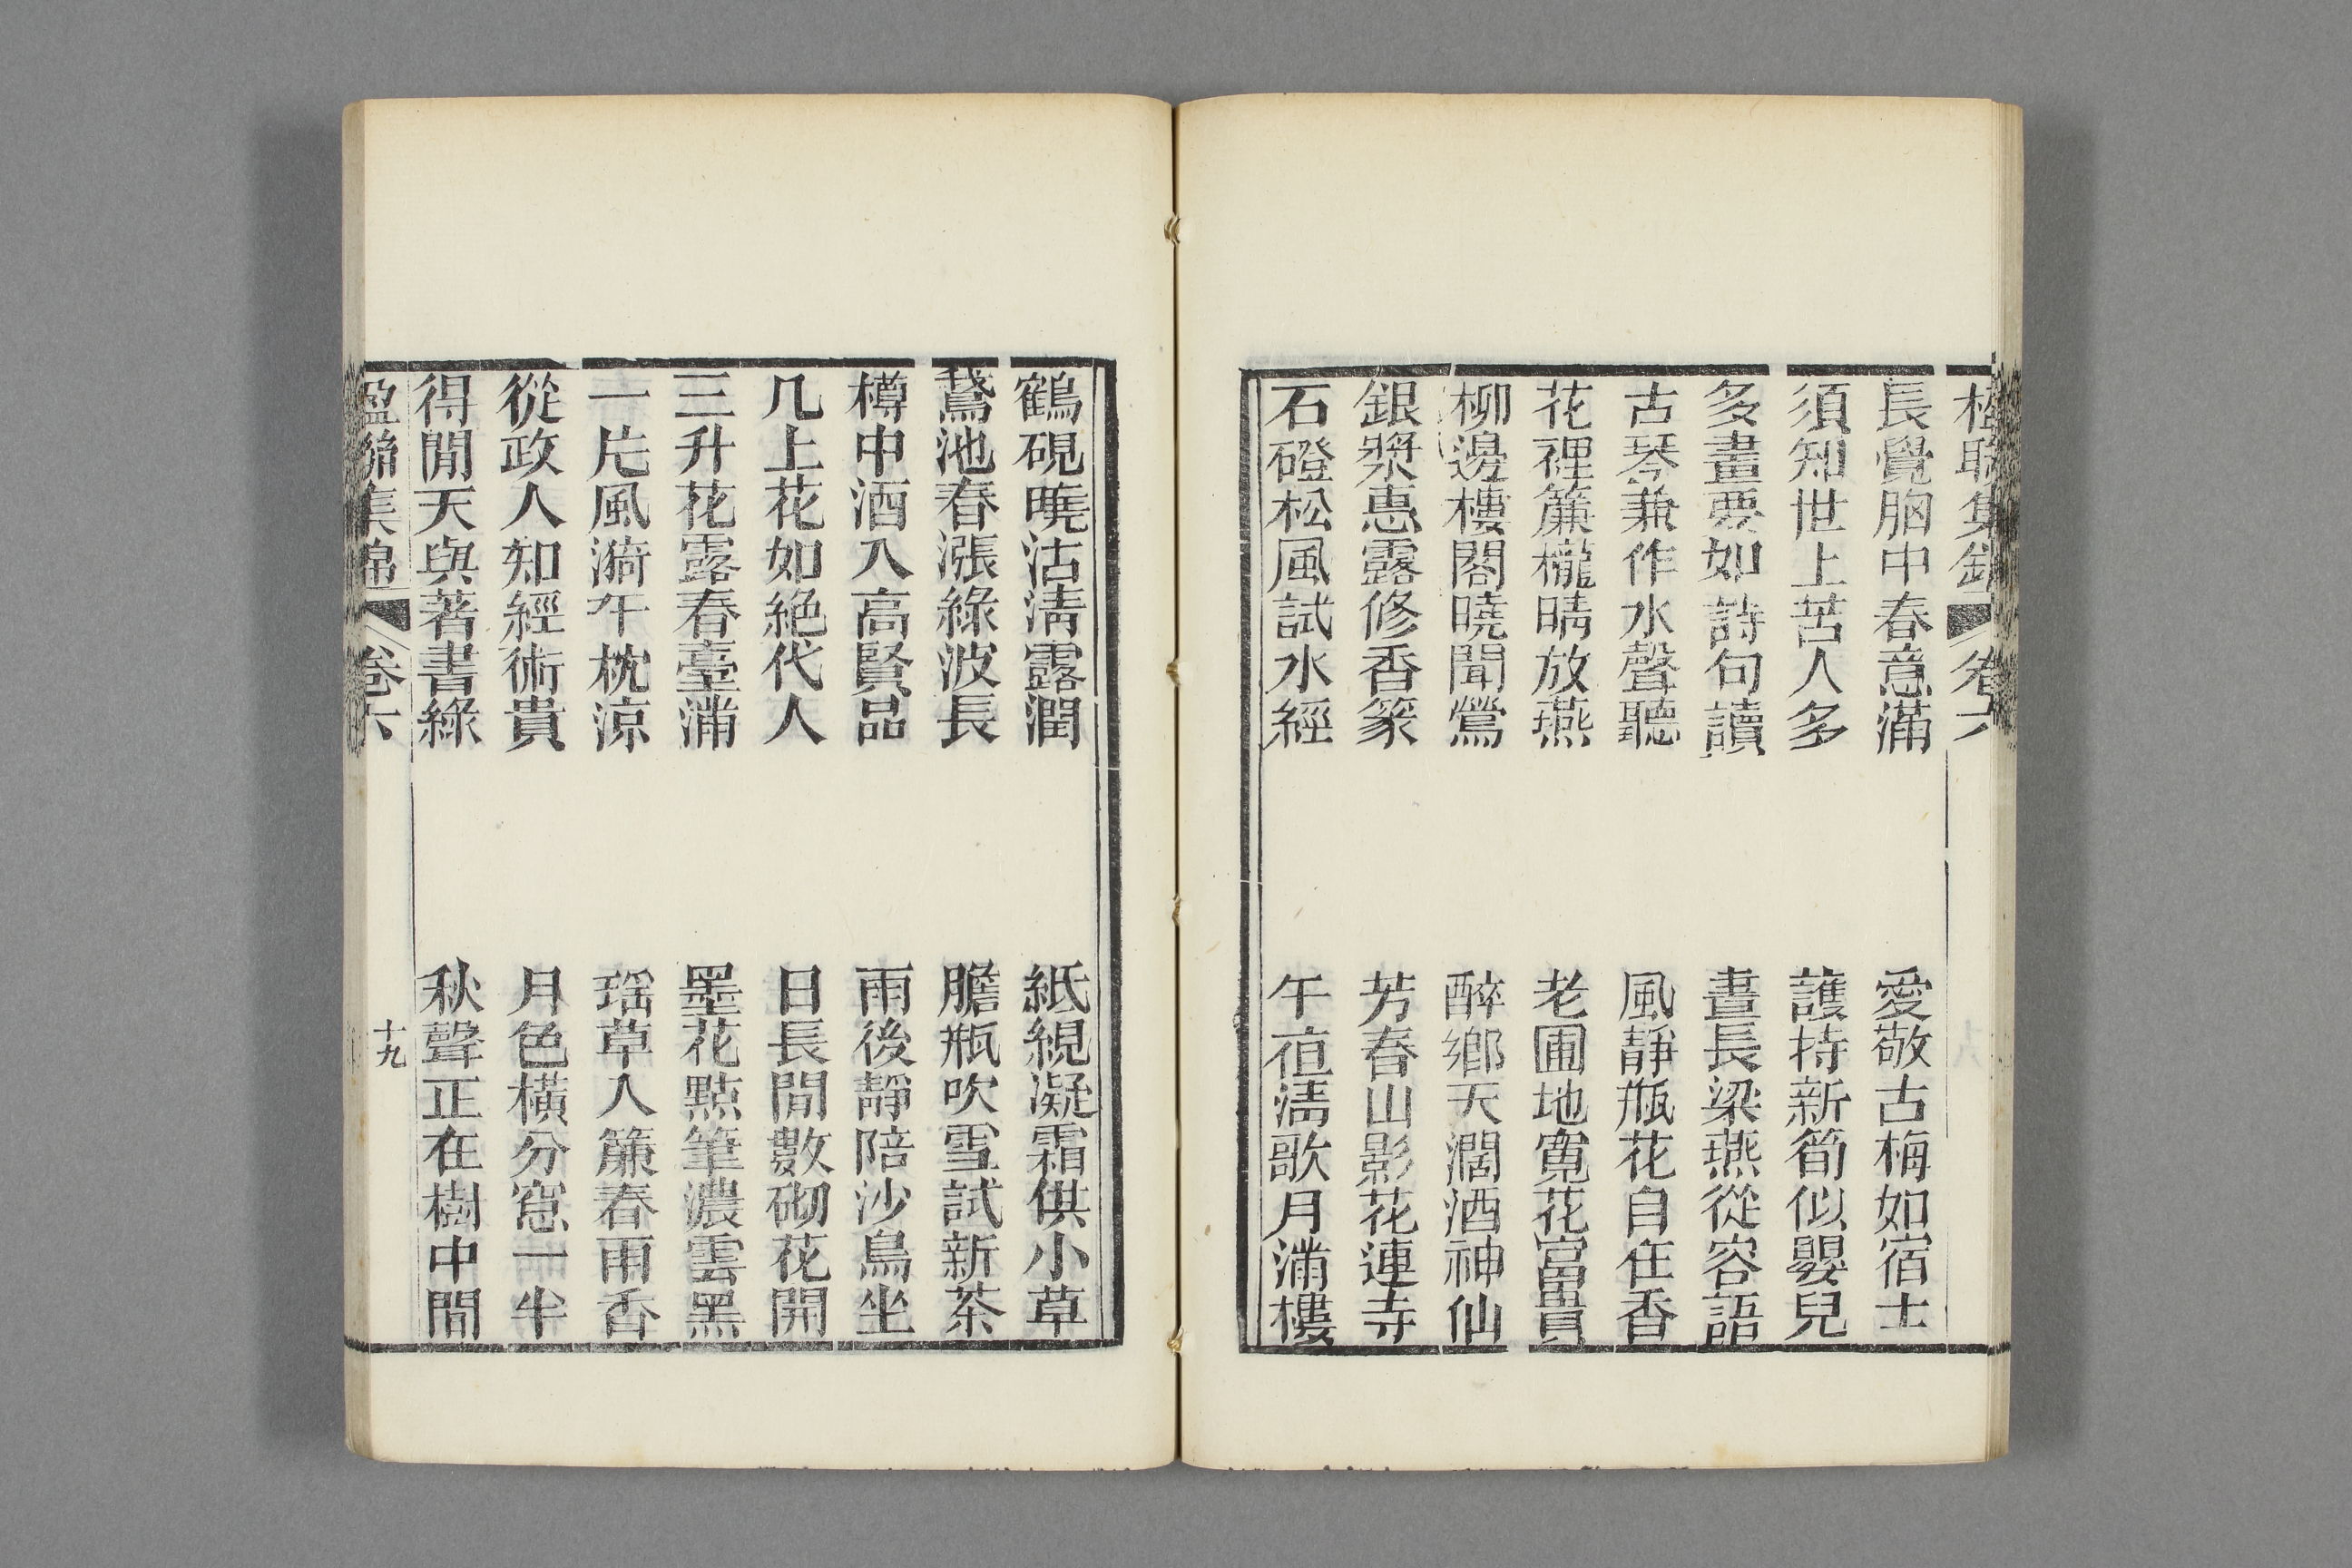 楹聯集錦 卷六
長覺胸中春意滿 愛敬古梅如宿士
須知世上苦人多 護持新筍似嬰兒
多畫要如詩句讀 晝長梁燕從容語
古琴兼作水聲聽 風靜瓶花自在香
花裡簾櫳晴放燕 老圃地寬花富貴
柳邊樓閣曉聞鶯 醉鄉天濶酒神仙
銀漿惠露修香篆 芳春山影花連寺
石磴松風試水經 午夜清歌月滿樓
鶴硯曉沾清露潤 紙䙿凝霜供小草
鵞池春漲綠波長 膽瓶吹雪試新茶
樽中酒入高賢品 雨後靜陪沙鳥坐
几上花如絕代人 日長閒數砌花開
三升花露春臺滿 墨花點筆濃雲黑
一片風漪午枕涼 瑶草入簾春雨香
從政人知經術貴 月色橫分窻一半
得閒天與著書綠 秋聲正在樹中間
楹聯集錦 卷六 十九